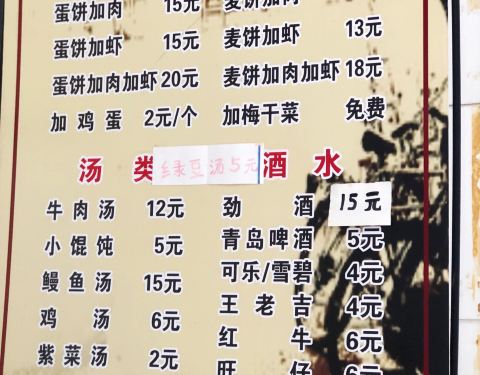 蛋饼加肉 15元
蛋饼加虾 15元
蛋饼加肉加虾 20元
加鸡蛋 2元/个
麦饼加肉
麦饼加虾 13元
麦饼加肉加虾 18元
加梅干菜 免费
汤类
绿豆汤5元
牛肉汤 12元
小馄饨 5元
鳗鱼汤 15元
鸡汤 6元
紫菜汤 2元
酒水
劲酒 15元
青岛啤酒 5元
可乐/雪碧 4元
王老吉 4元
红牛 6元
旺仔 6元